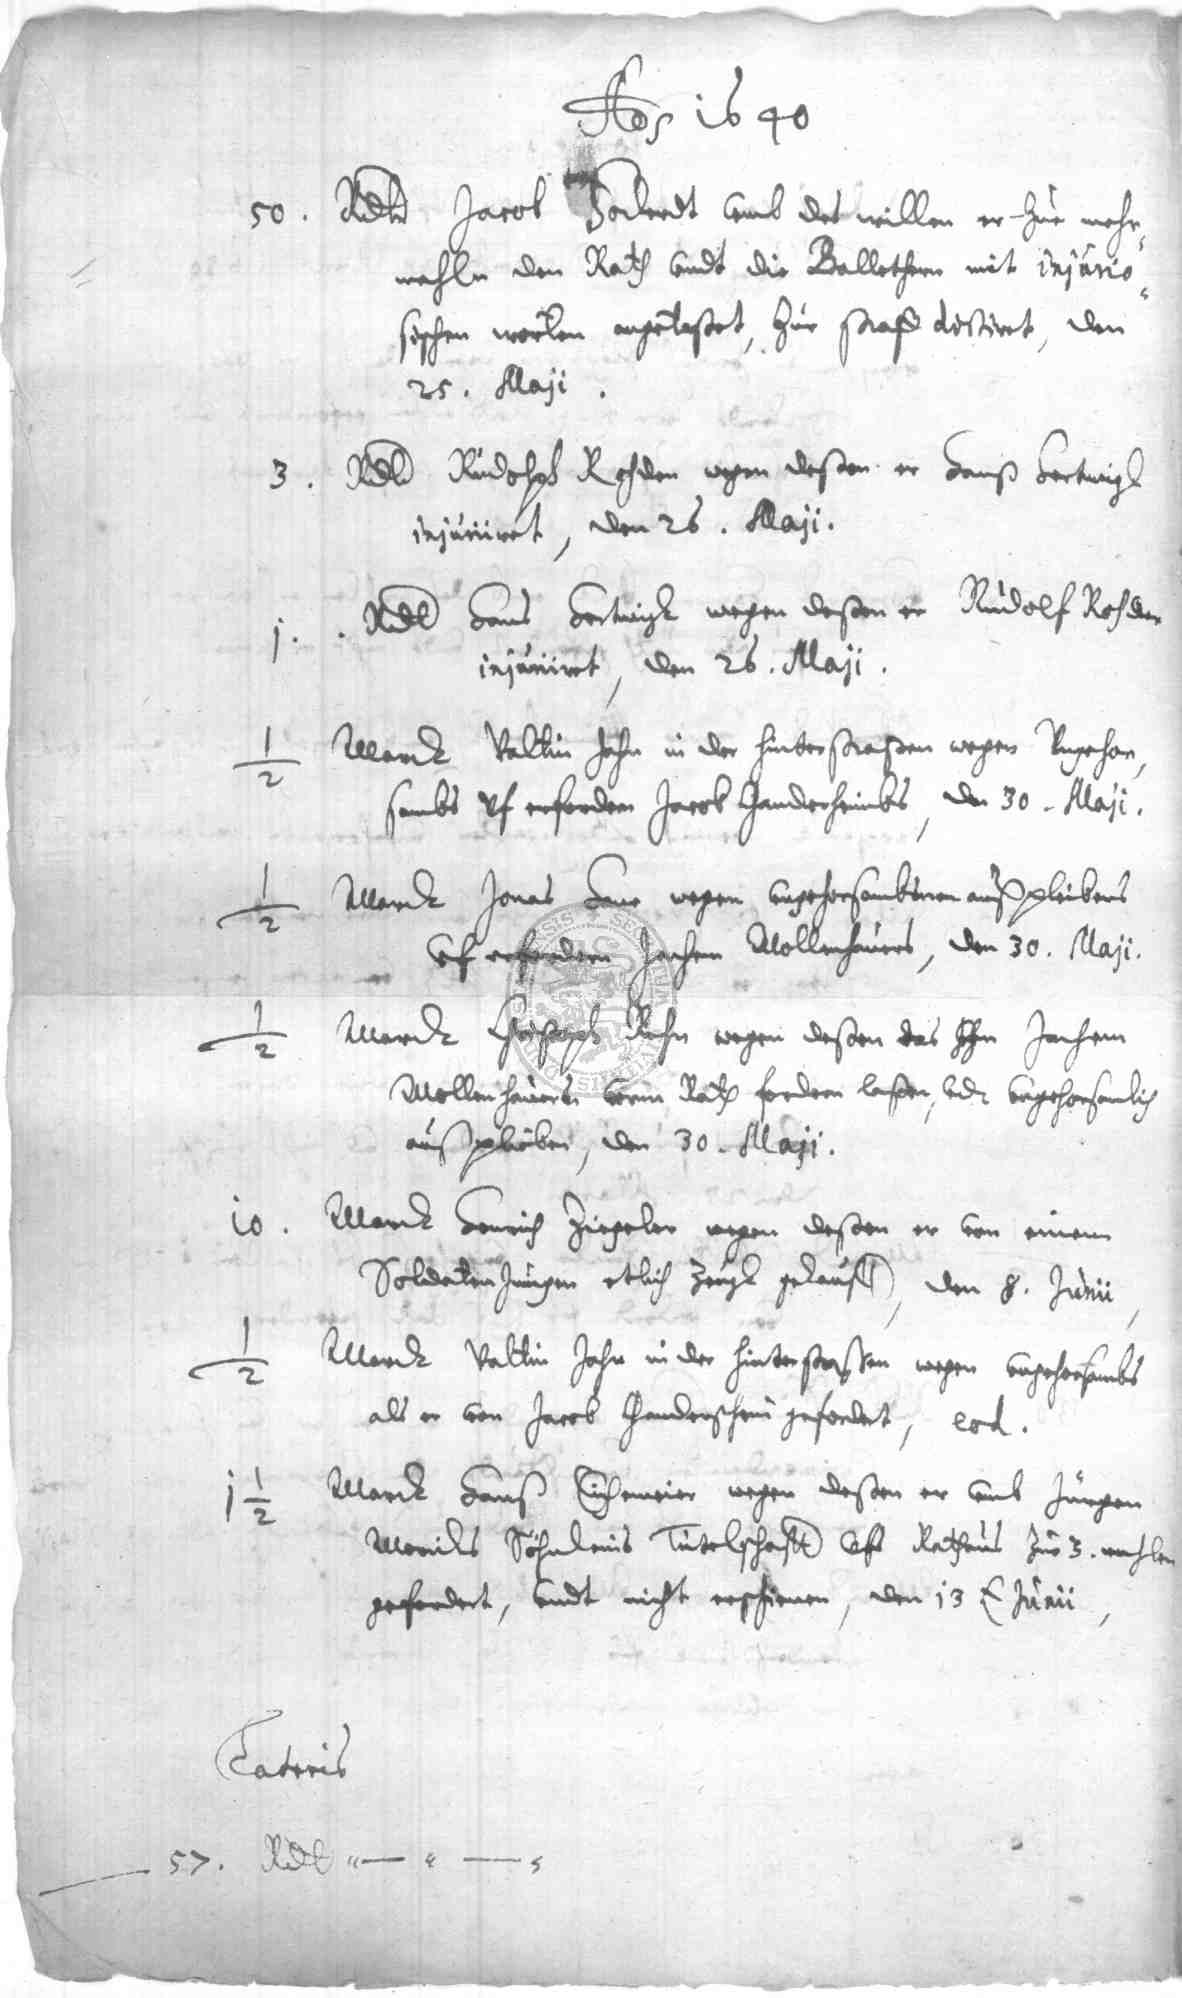 Ao 1640
50. Rdl Jacob Borderdt umb des willen er zur mehr,
mahln den Rath undt die Ballethern mit injurio„
sischen worten angetastet, zur straf dictiret, den
25. Maji.
3. Rdl Rudolph Rohden wegen deßen er Hanß Hertwigk
injuriiret, den 26. Maji.
j. Rdl Hans Hertwigk wegen deßen er Rudolf Rohden
injuriiret, den 26. Maji.
1/2 Marck Valtin Jahn in der hinterstraßen wegen Ungehor,
sambs uf erfordern Jacob Ganderheimbs, den 30. Maji.
1/2 Marck Jonas wegen ungehorsambenen außpleibens
uf erfordern Jochem Mollenhauers, den 30. Maji.
1/2 Marck Christoph wegen deßen das Ihn Jochem
Mollenhauer vorm Rath fordern laßen, undt ungehorsamlich
außpleiben, den 30. Maji.
10. Marck Henrich Ziegeler wegen deßen er von einem
Soldaten Jungen etlich Zeugk gekaufft, den 8. Junii,
1/2 Marck Valtin Jahn in der hinterstraßen wegen ungehorsambs
als er von Jacob Ganderscheim gefordert, eod.
j 1/2 Marck Hanß Eichemeier wegen deßen er umb Jürgen
Söhnleins Tutelschafft ufs Rathaus zur 3. mahlen
gefordert, undt nicht erschienen, den 13 Junii,
Lateris
57. Rdl „ — „ — „